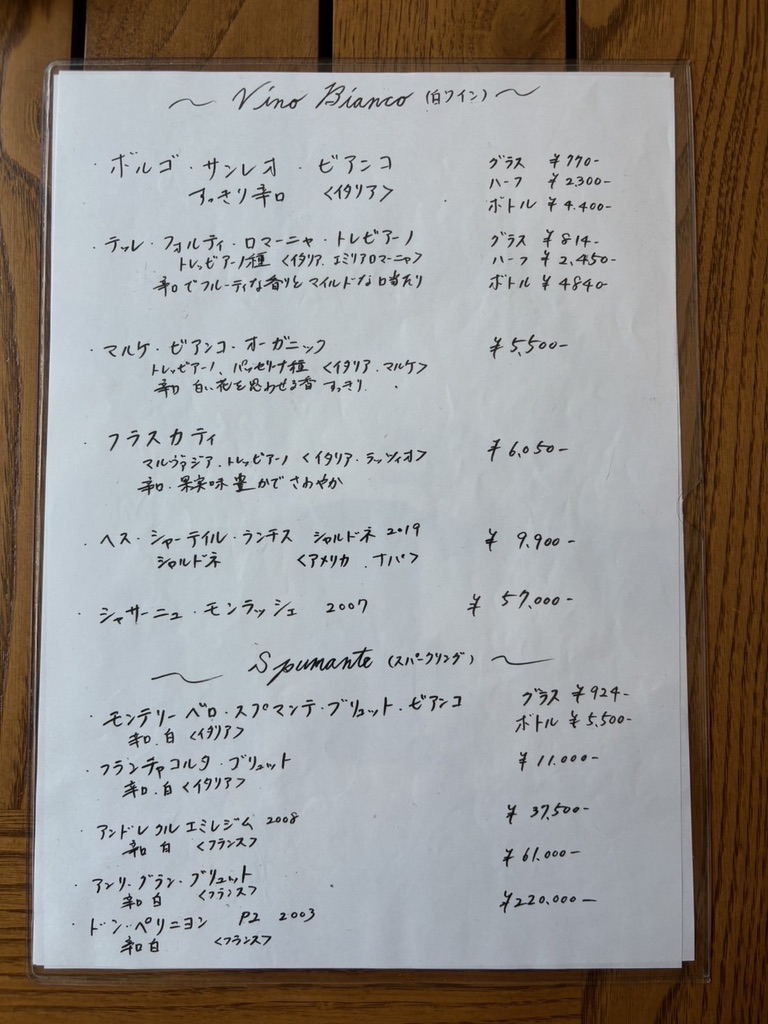 〜 Vino Bianco (白ワイン) 〜
・ボルゴ・サンレオ・ビアンコ グラス ¥770-
すっきり辛口 〈イタリア〉 ハーフ ¥2.300-
ボトル ¥4.400-
・テッレ・フォルティ・ロマーニャ・トレビアーノ グラス ¥814-
トレッビアーノ種 〈イタリア.エミリアロマーニャ〉 ハーフ ¥2,450-
辛口でフルーティな香りとマイルドな口当たり ボトル ¥4840-
・マルケ・ビアンコ・オーガニック ¥5,500-
トレッビアーノ、パッセリーナ種 〈イタリア.マルケ〉
辛口 白い花を思わせる香 すっきり.
・フラスカティ ¥6,050-
マルヴァジア.トレッビアーノ 〈イタリア・ラッツィオ〉
辛口.果実味豊かでさわやか
・ヘス・シャーテイル・ランチス シャルドネ 2019 ¥9.900-
シャルドネ 〈アメリカ.ナパ〉
・シャサーニュ・モンラッシェ 2007 ¥57.000-
〜 Spumante (スパークリング) 〜
・モンテリーベロ・スプマンテ・ブリュット.ビアンコ グラス ¥924-
辛口.白 〈イタリア〉 ボトル ¥5,500-
・フランチャコルタ・ブリュット ¥11.000-
辛口.白 〈イタリア〉
・アンドレ クルエミレジム 2008 ¥37,500-
辛口 白 〈フランス〉
・アンリ.グラン・ブリュット ¥61.000-
辛口 白 〈フランス〉
・ドン・ペリニヨン P2 2003 ¥220.000-
辛口 白 〈フランス〉